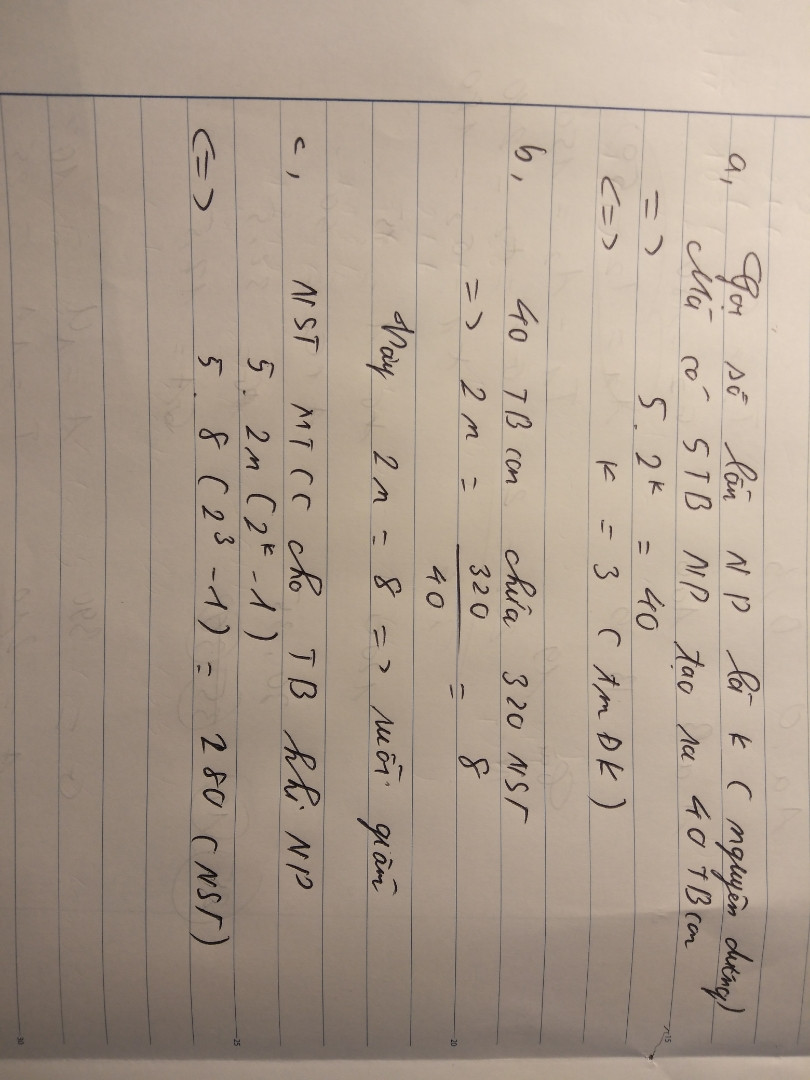 a, Gọi số lần NP là k (nguyên dương)
Mà có 5TB NP tạo ra 40 TB con
=> 5. 2^k = 40
<=> k = 3 (tm ĐK)
b, 40 TB con chứa 320 NST
=> 2n = 320/40 = 8
Vậy 2n = 8 => ruồi giấm
c, NST MTCC cho TB khi NP
5. 2n (2^k - 1)
<=> 5. 8 (2^3 - 1) = 280 (NST)
15
20
25
30